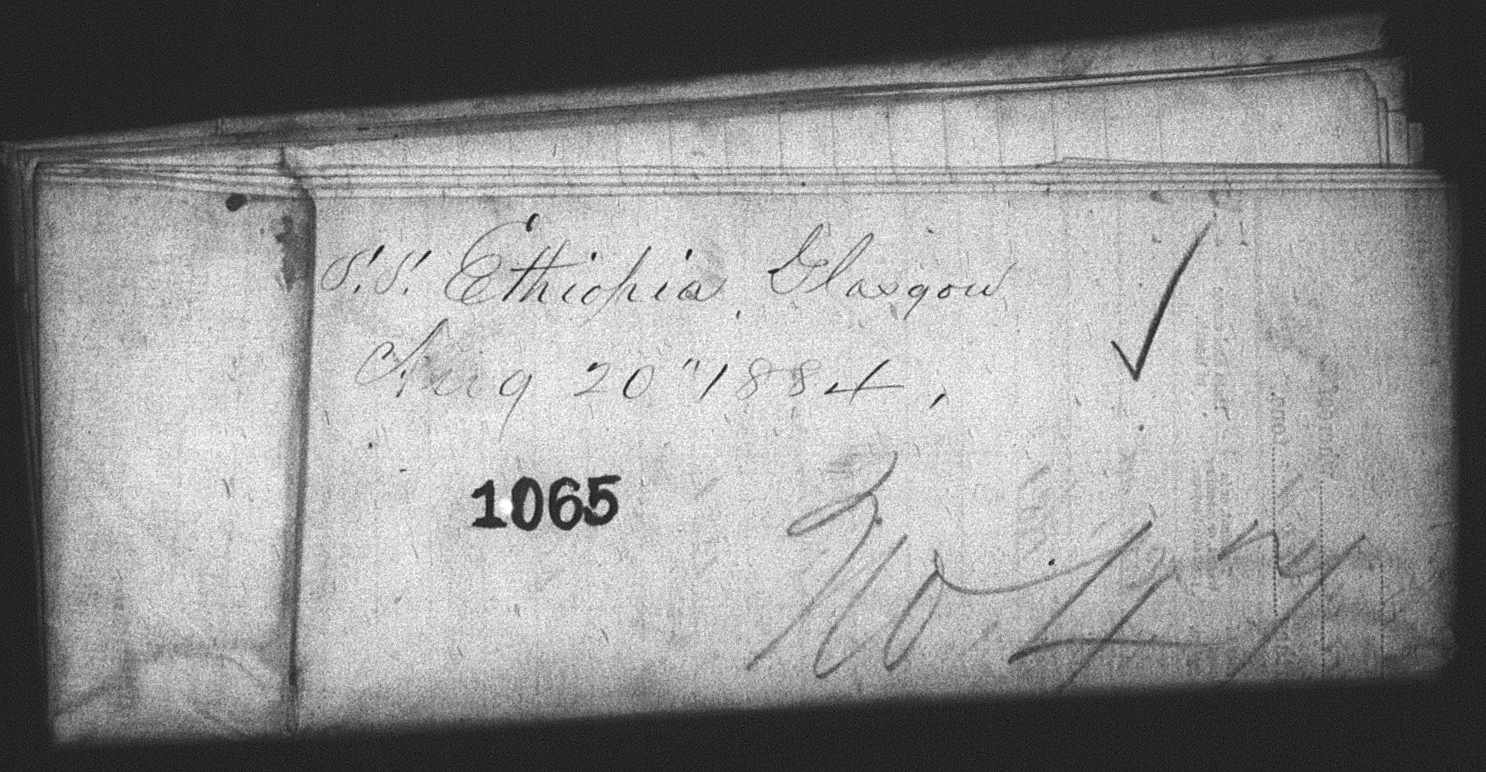 S.S. Ethiopia, Glasgow
Aug 20" 1884,
1065
No. 47